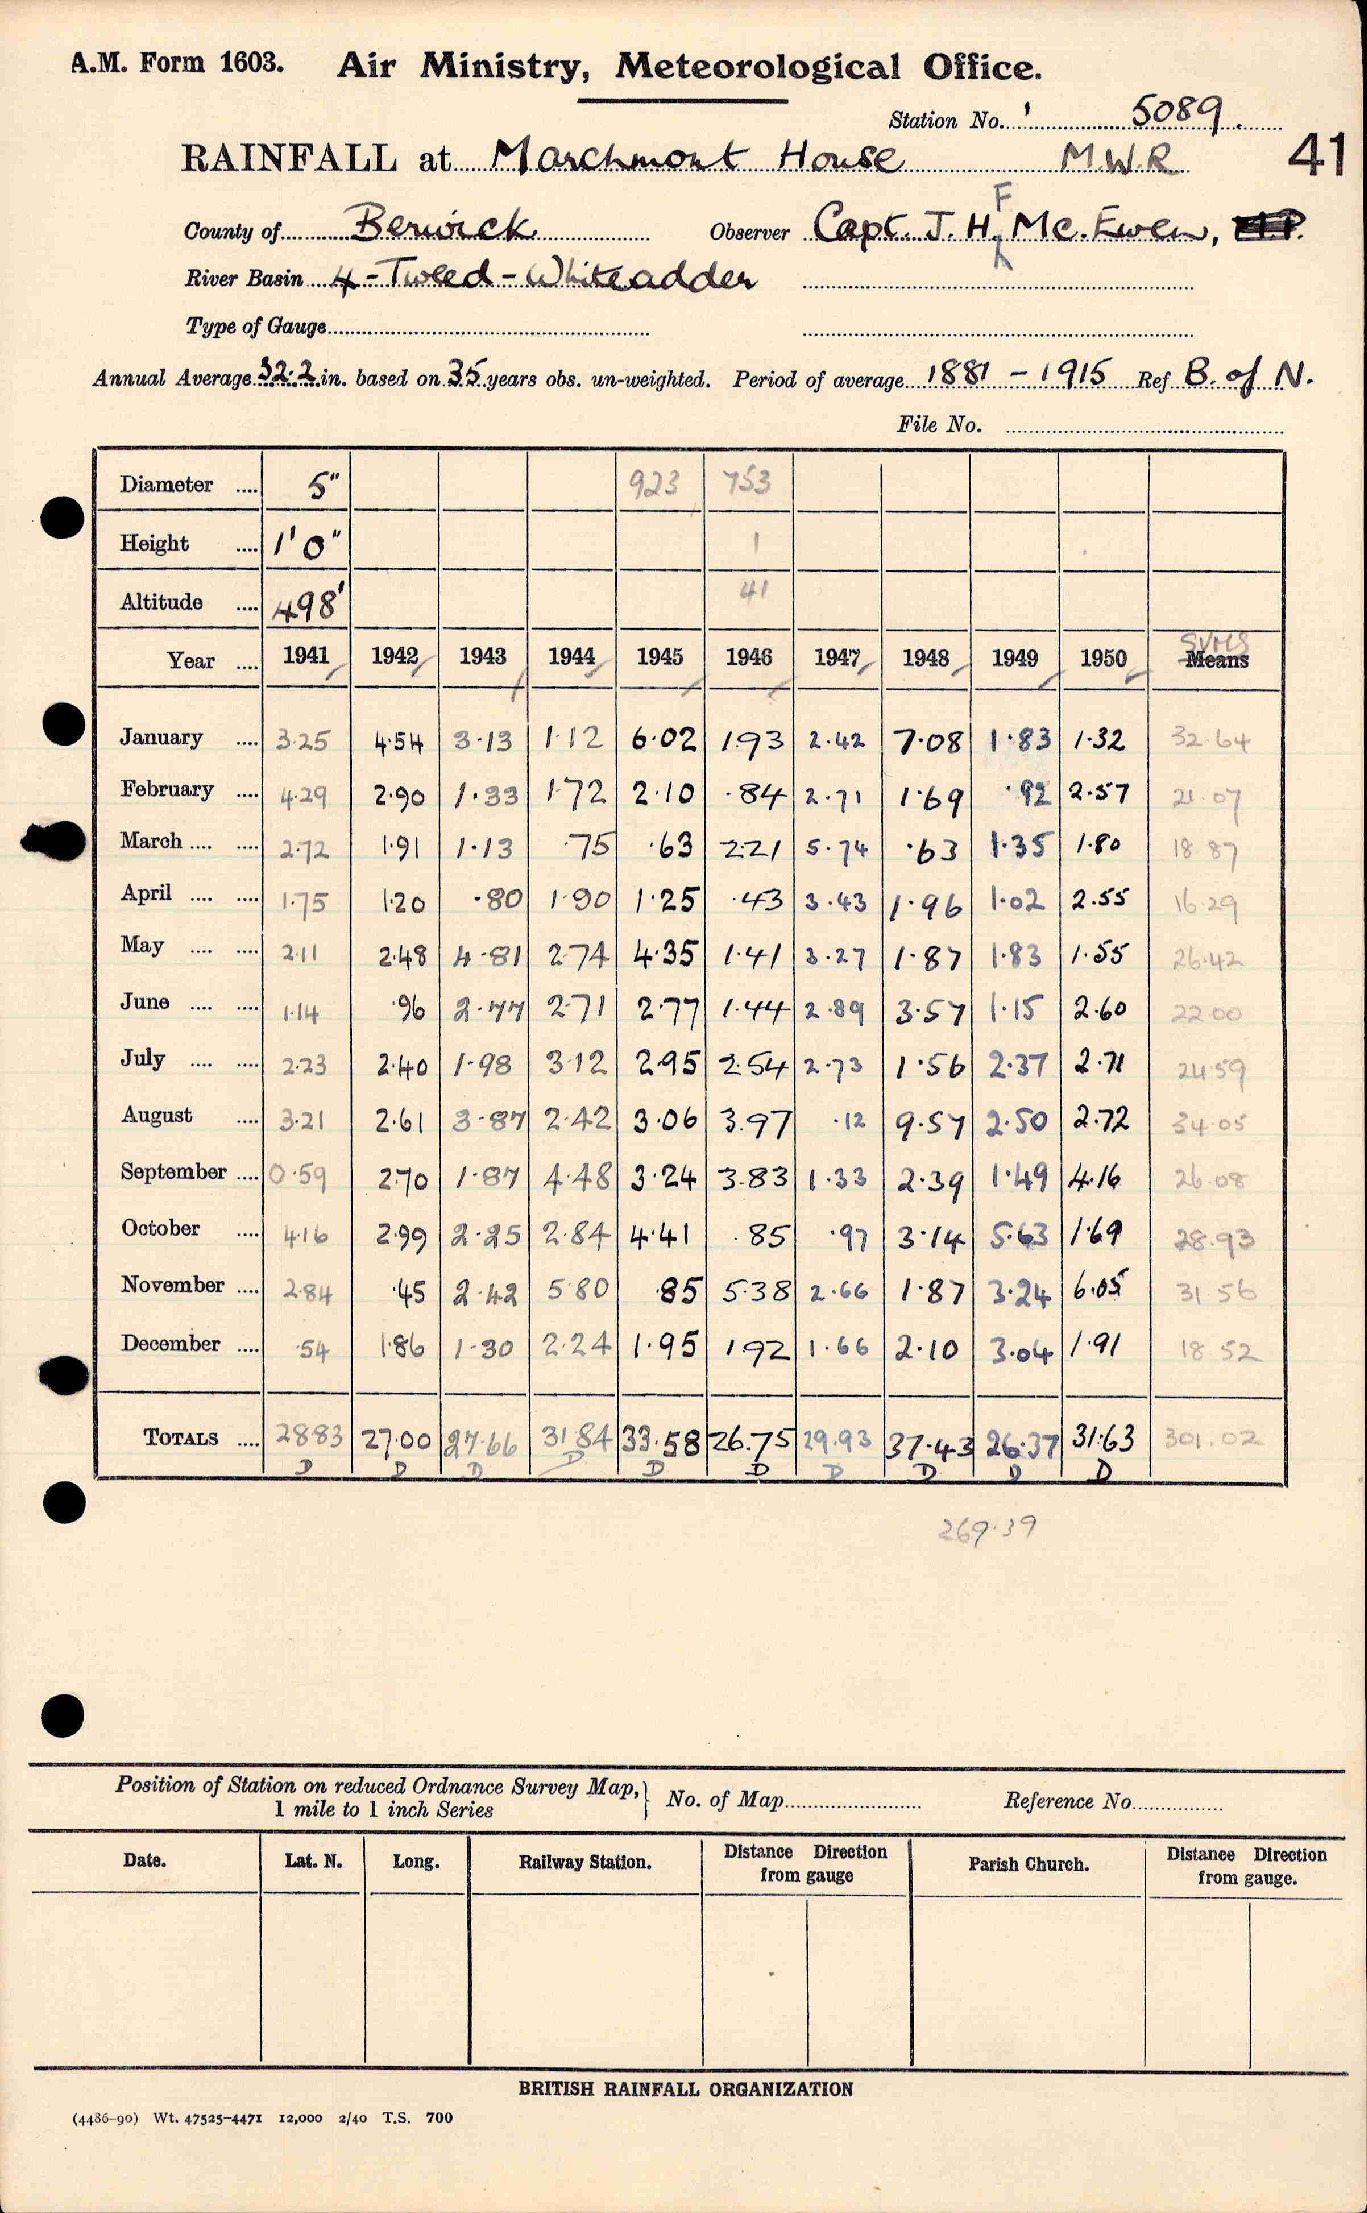 A.M. Form 1603. Air Ministry, Meteorological Office.
Station No. 5089.
RAINFALL at Marchmont House M.W.R 41
County of Berwick Observer Capt. J. H. F Mc. Ewen,
River Basin 4 - Tweed - Whiteadder
Type of Gauge
Annual Average 32.2 in. based on 35 years obs. un-weighted. Period of average 1881 - 1915 Ref B. of N.
File No.
Diameter .... 5" 923 753
Height .... 1' 0" 1
Altitude .... 498' 41
Year .... 1941 1942 1943 1944 1945 1946 1947 1948 1949 1950 Means SVMS
January .... 3.25 4.54 3.13 1.12 6.02 1.93 2.42 7.08 1.83 1.32 32.64
February .... 4.29 2.90 1.33 1.72 2.10 .84 2.71 1.69 .92 2.57 21.07
March .... .... 2.72 1.91 1.13 .75 .63 2.21 5.74 .63 1.35 1.80 18.87
April .... .... 1.75 1.20 .80 1.90 1.25 .43 3.43 1.96 1.02 2.55 16.29
May .... .... 2.11 2.48 4.81 2.74 4.35 1.41 3.27 1.87 1.83 1.55 26.42
June .... .... 1.14 .96 2.77 2.71 2.77 1.44 2.89 3.57 1.15 2.60 22.00
July .... .... 2.23 2.40 1.98 3.12 2.95 2.54 2.73 1.56 2.37 2.71 24.59
August .... 3.21 2.61 3.87 2.42 3.06 3.97 .12 9.57 2.50 2.72 34.05
September .... 0.59 2.70 1.87 4.48 3.24 3.83 1.33 2.39 1.49 4.16 26.08
October .... 4.16 2.99 2.25 2.84 4.41 .85 .97 3.14 5.63 1.69 28.93
November .... 2.84 .45 2.42 5.80 .85 5.38 2.66 1.87 3.24 6.05 31.56
December .... .54 1.86 1.30 2.24 1.95 1.92 1.66 2.10 3.04 1.91 18.52
TOTALS .... 28.83 27.00 27.66 31.84 33.58 26.75 29.93 37.43 26.37 31.63 301.02
D D D D D D D D D D
269.39
Position of Station on reduced Ordnance Survey Map, } No. of Map Reference No
1 mile to 1 inch Series
Date. Lat. N. Long. Railway Station. Distance Direction from gauge Parish Church. Distance Direction from gauge.
BRITISH RAINFALL ORGANIZATION
(4486-90) Wt. 47525-4471 12,000 2/40 T.S. 700